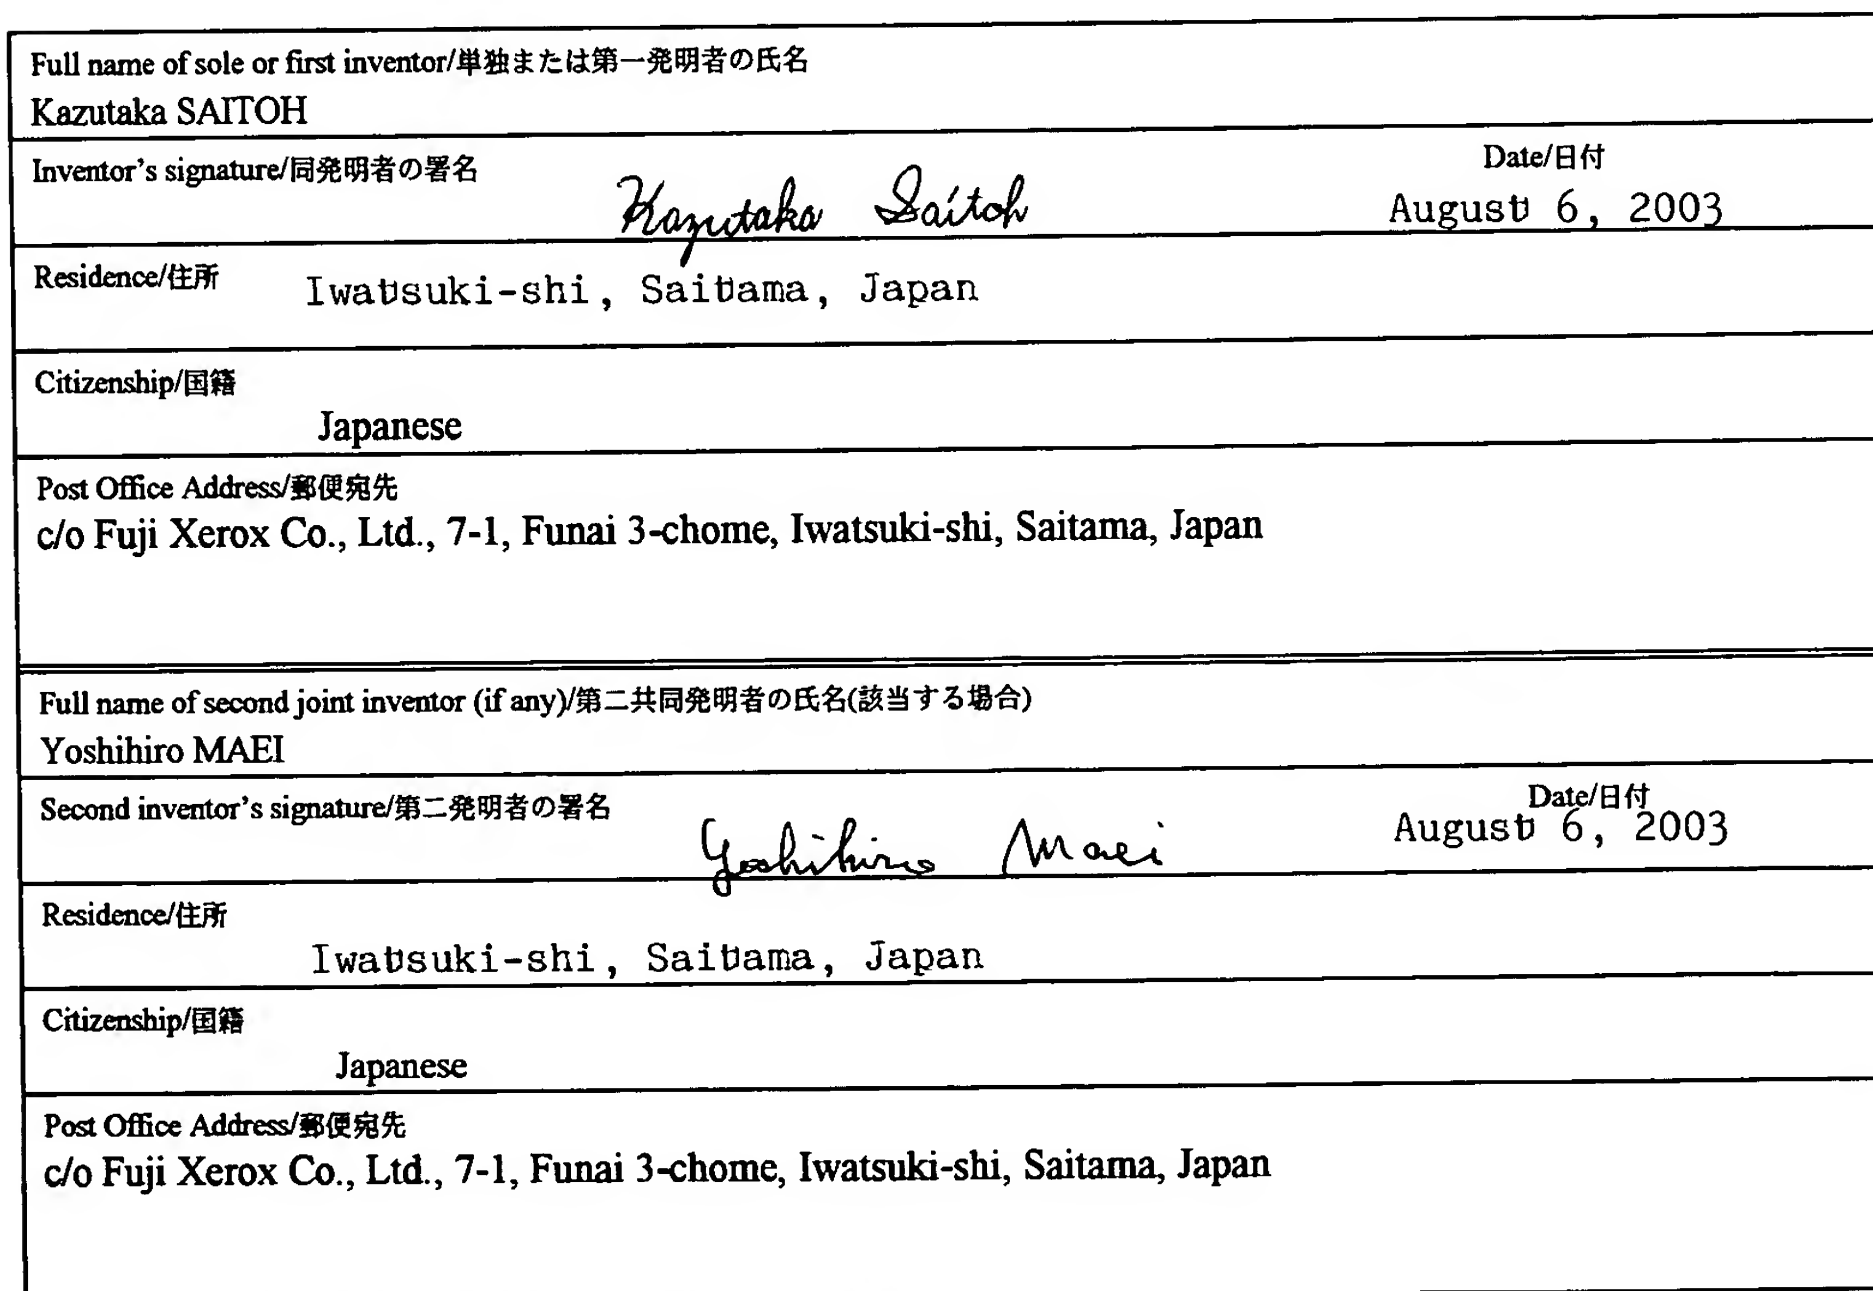 Full name of sole or first inventor/単独または第一発明者の氏名
Kazutaka SAITOH
Inventor's signature/同発明者の署名
Kazutaka Saitoh
Date/日付
August 6, 2003
Residence/住所
Iwatsuki-shi, Saitama, Japan
Citizenship/国籍
Japanese
Post Office Address/郵便宛先
c/o Fuji Xerox Co., Ltd., 7-1, Funai 3-chome, Iwatsuki-shi, Saitama, Japan
Full name of second joint inventor (if any)/第二共同発明者の氏名(該当する場合)
Yoshihiro MAEI
Second inventor's signature/第二発明者の署名
Yoshihiro Maei
Date/日付
August 6, 2003
Residence/住所
Iwatsuki-shi, Saitama, Japan
Citizenship/国籍
Japanese
Post Office Address/郵便宛先
c/o Fuji Xerox Co., Ltd., 7-1, Funai 3-chome, Iwatsuki-shi, Saitama, Japan